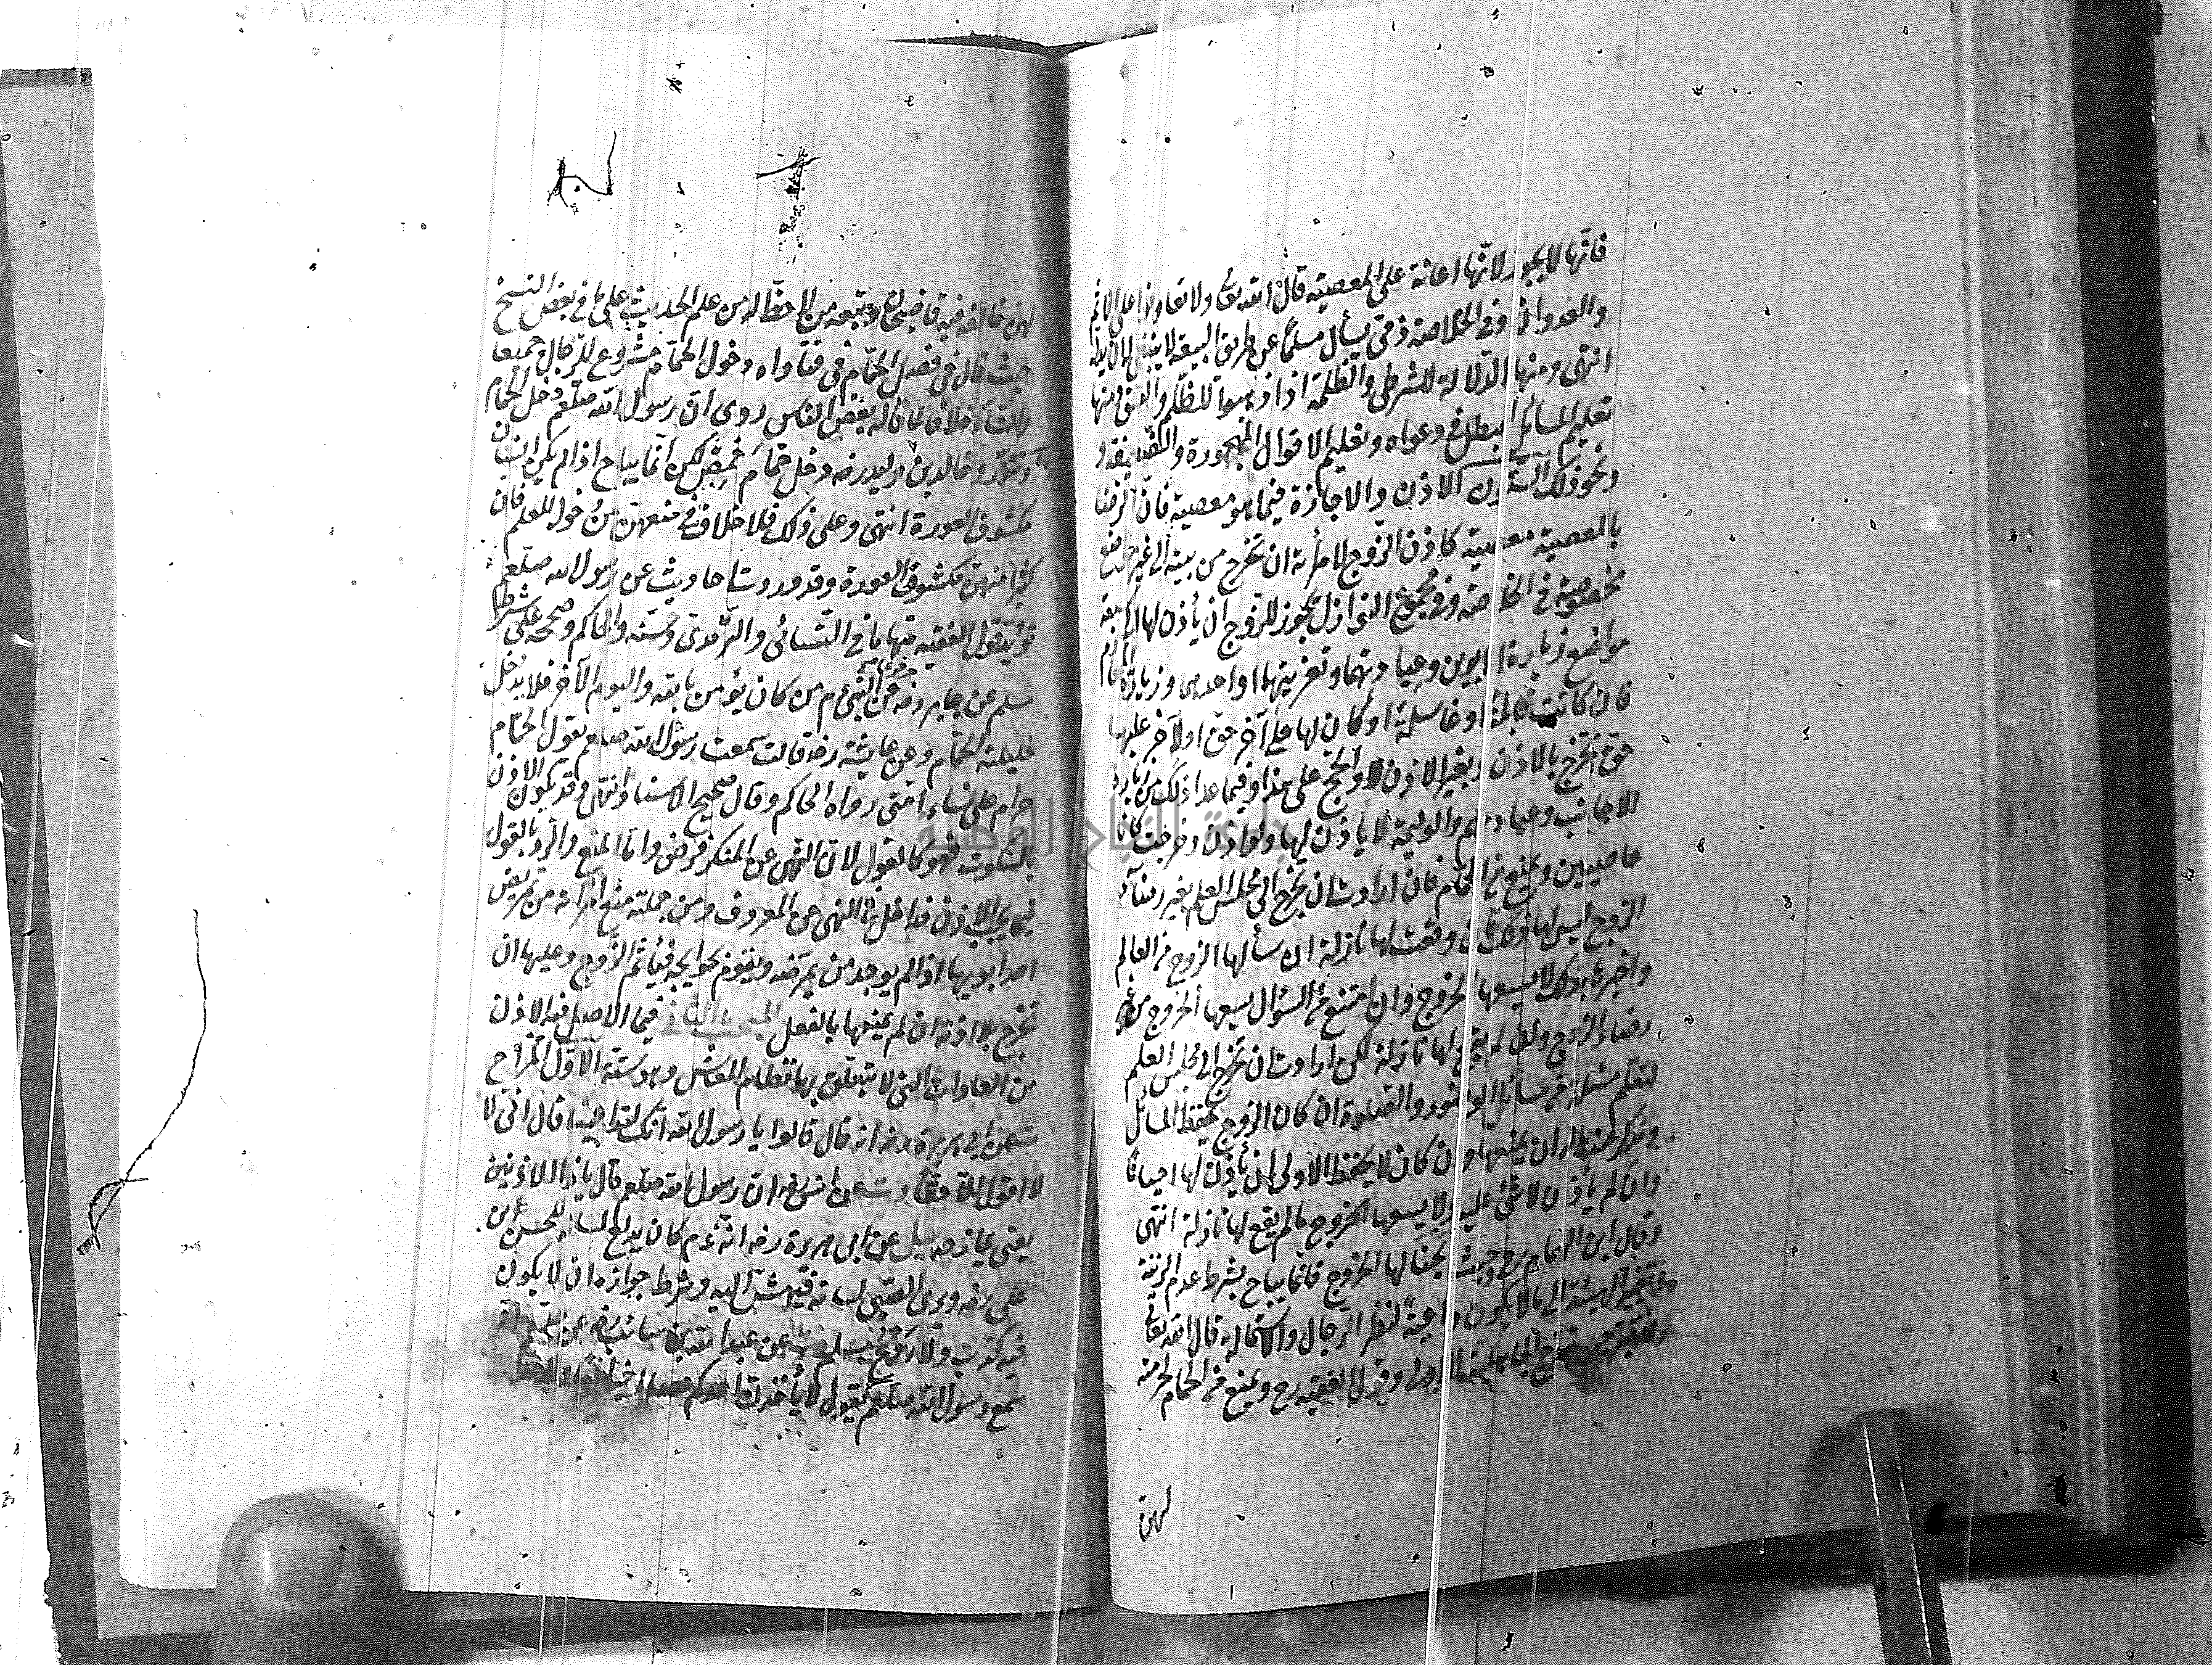 فانها لا يجوز لانها اعانة على المعصية قال الله تع ولا تعاونوا على الاثم
والعدوان وفي الخلاصة ذمي يسأل مسلما عن طريق البيعة لا ينبغي له ان يدله
انتهى ومنها الدلالة للشرطى والظلمة اذا ذهبوا للظلم والفسق ومنها
تعليم المسائل لمبطل في دعواه وتعليم الاقوال المهجورة والضعيفة و
ونحو ذلك السادس الاذن والاجازة فيما هو معصية فان الرضا
بالمعصية معصية كاذن الزوج لامرأته ان تخرج من بيته الى غير مواضع
مخصوصة في الخلاصة وفي مجموع النوازل يجوز للزوج ان يأذن لها الى سبعة
مواضع زيارة الابوين وعيادتهما وتعزيتهما او احدهما وزيارة المحارم
فان كانت قابلة او غاسلة او كان لها على آخر حق او لآخر عليها
حق تخرج بالاذن وبغير الاذن والحج على هذا وفيما عدا ذلك من زيارة
الاجانب وعيادتهم والوليمة لا يأذن لها ولو اذن وخرجت كانا
عاصيين وتمنع من الحمام فان ارادت ان تخرج الى مجلس العلم بغير رضاء
الزوج ليس لها ذلك فان وقعت لها نازلة ان سأل لها الزوج من العالم
واخبرها بذلك لا يسعها الخروج وان امتنع من السؤال يسعها الخروج من غير
رضاء الزوج وان لم يقع لها نازلة لكن ارادت ان تخرج الى مجلس العلم
لتعلم مسئلة من مسائل الوضوء والصلوة ان كان الزوج يحفظ المسائل
ويذكر عندها له ان يمنعها وان كان لا يحفظ الاولى ان يأذن لها احيانا
وان لم يأذن لا شئ عليه ولا يسعها الخروج ما لم يقع لها نازلة انتهى
وقال ابن الهمام رح وحيث ابحنا لها الخروج فانما يباح بشرط عدم الزينة
وتغيير الهيئة الى ما لا يكون داعية لنظر الرجال والاستمالة قال الله تعالى
ولا تبرجن تبرج الجاهلية الاولى وقول الفقيه رح وتمنع من الحمام لحرمته
لهن
لهن خالفه فيه قاضيخان وتبعه من لا حظ له من علم الحديث على ما في بعض النسخ
حيث قال في فصل الحمام في فتاواه دخول الحمام مشروع للرجال جميعا
والنساء خلافا لما قاله بعض الناس روى ان رسول الله صلعم دخل الحمام
وتنور وخالد بن وليد رضه دخل حمام حمص لكن انما يباح اذا لم يكن انسان
مكشوف العورة انتهى وعلى ذلك فلا خلاف في منعهن من دخوله للعلم فان
كثيرا منهن مكشوف العورة وقد وردت احاديث عن رسول الله صلعم
تؤيد قول الفقيه منها ما في النسائى والترمذى وحسنه والحاكم وصححه على شرط
مسلم عن جابر رضه عن النبى ءم من كان يؤمن بالله واليوم الآخر فلا يدخل
حليلته الحمام وعن عايشة رضه قالت سمعت رسول الله صلعم يقول الحمام
حرام على نساء امتى رواه الحاكم وقال صحيح الاسناد انتهى وقد يكون الاذن
بالسكوت فهو كالقول لان النهى عن المنكر فرض واما المنع والرد بالقول
فيما يجب الاذن فداخل في النهى عن المعروف ومن جملته منع امرأته من تمريض
احد ابويها اذا لم يوجد من يمرضه ويقوم بحوايجه فيأثم الزوج وعليها ان
تخرج بلا اذنه ان لم يمنعها بالفعل المبحث الثانى فيما الاصل فيه الاذن
من العادات التى لا يتعلق بها نظام المعاش وهو ستة الاول المزاح
ت عن ابى هريرة رضه انه قال قالوا يا رسول الله انك لتداعبنا قال انى لا
لا اقول الا حقا د ت عن انس رضه ان رسول الله صلعم قال يا ذا الاذنين
يعنى يمازحه يعلى عن ابى هريرة رضه انه ءم كان يدلع لسانه للحسن بن
على رضه ويرى الصبى لسانه فيهش اليه وشرط جوازه ان لا يكون
فيه كذب ولا ترويع مسلم عن عبد الله بن سائب رضه عن
سمع رسول الله صلعم يقول لا يأخذن احدكم عصا